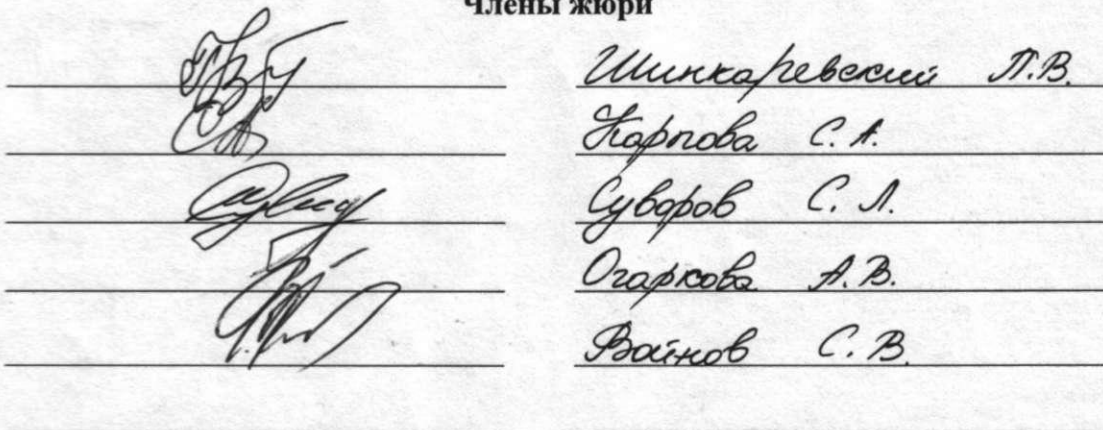 Члены жюри
Шинкаревский П.В.
Карпова С. А.
Суворов С. Л.
Огаркова А.В.
Войнов С. В.